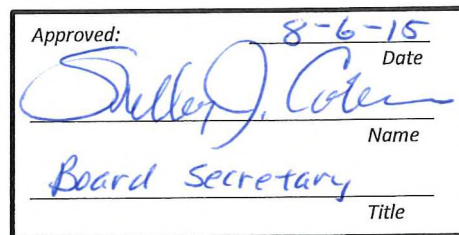 Approved: 8-6-15
Date
Shelley J.
Name
Board Secretary
Title